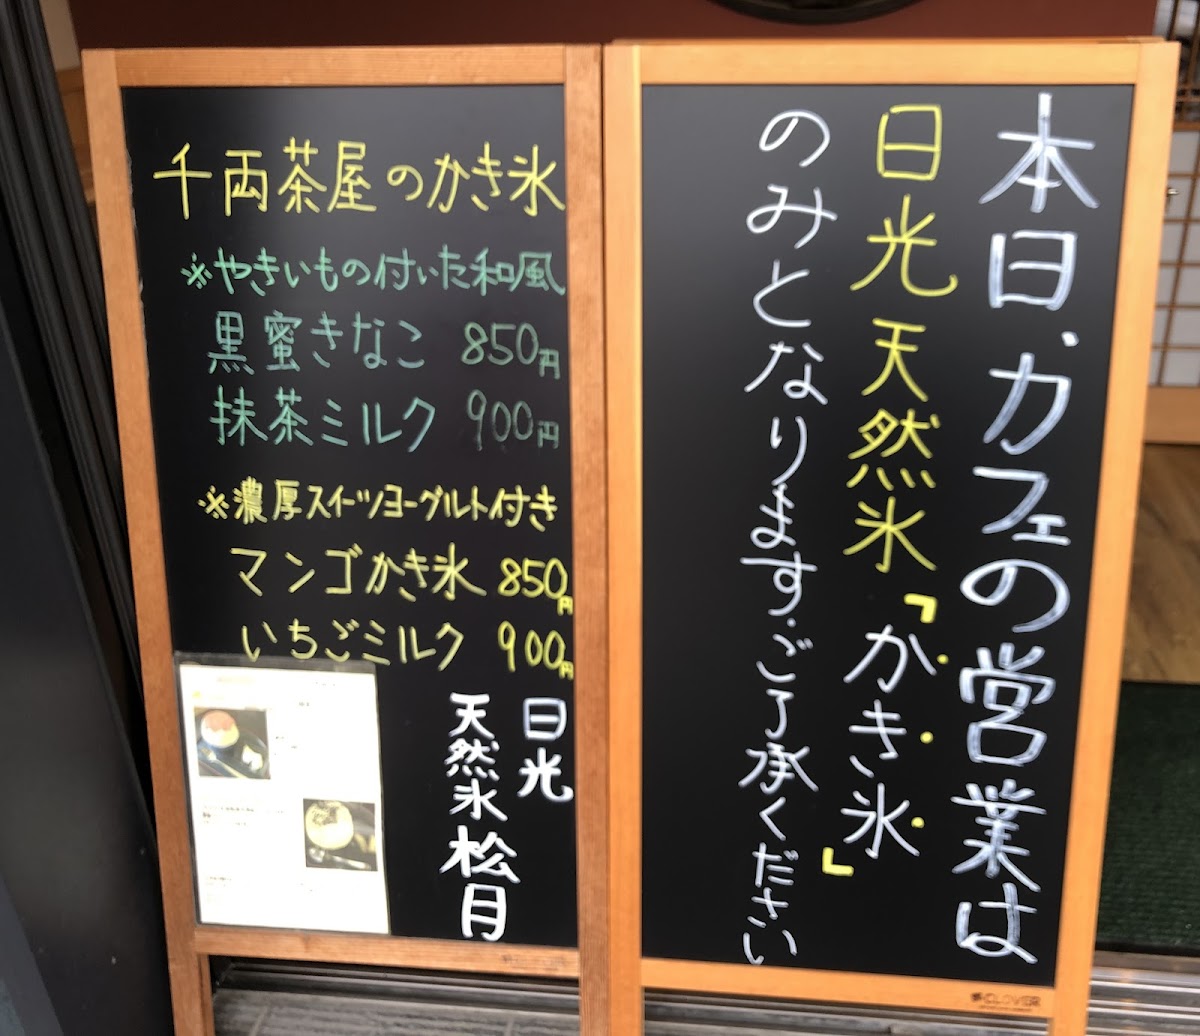 千両茶屋のかき氷
※やきいもの付いた和風
黒蜜きなこ 850円
抹茶ミルク 900円
※濃厚スイーツヨーグルト付き
マンゴかき氷 850円
いちごミルク 900円
日光
天然氷 松月
本日、カフェの営業は
日光天然氷「かき氷」
のみとなります。ご了承ください
CLOVER